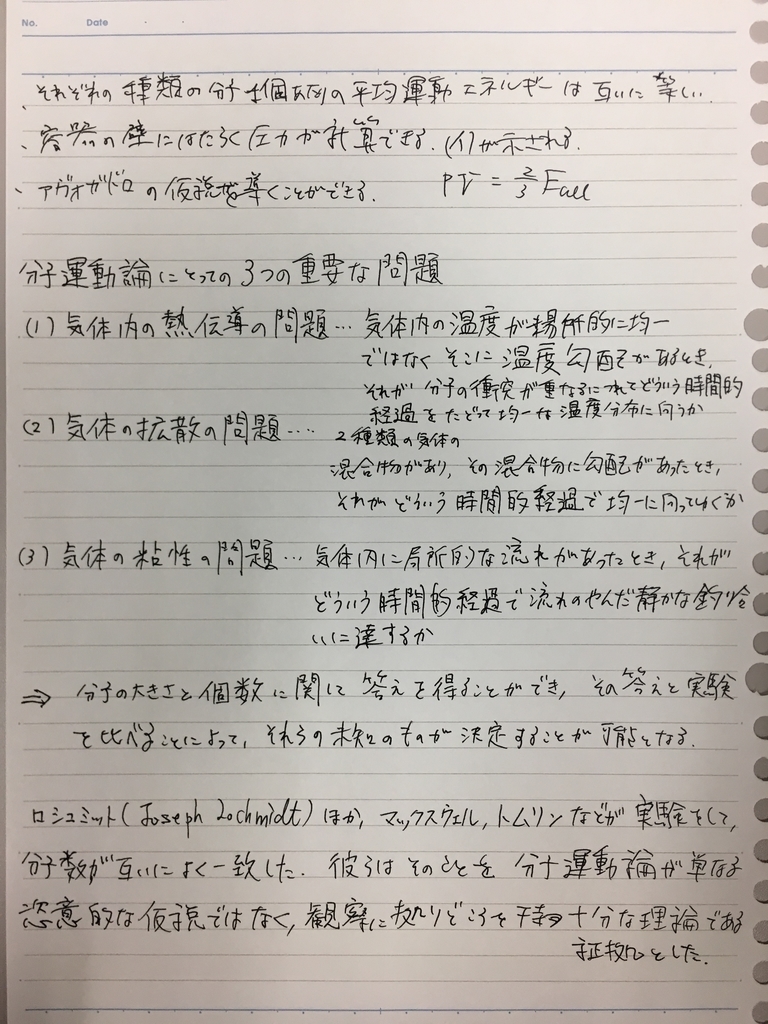 No. Date
、それぞれの種類の分子1個あたりの平均運動エネルギーは互いに等しい.
、容器の壁にはたらく圧力が計算できる. (1)が示される.
、アヴォガドロの仮説を導くことができる. PV = 2/3 Eall
分子運動論にとっての3つの重要な問題
(1) 気体内の熱伝導の問題… 気体内の温度が場所的に均一
ではなく そこに温度勾配があるとき,
それが 分子の衝突が重なるにつれてどういう時間的
経過をたどって均一な温度分布に向うか
(2) 気体の拡散の問題…. 2種類の気体の
混合物があり, その混合物に勾配があったとき,
それが どういう時間的経過で均一に向ってゆくか
(3) 気体の粘性の問題… 気体内に局所的な流れがあったとき, それが
どういう時間的経過で流れのやんだ静かな釣り合
いに達するか
⇒ 分子の大きさと個数に関して答えを得ることができ, その答えと実験
を比べることによって, それらの未知のものが決定することが可能となる.
ロシュミット(Joseph Lochmidt)ほか, マックスウェル, トムソンなどが実験をして,
分子数が互いによく一致した. 彼らはそのことを 分子運動論が単なる
恣意的な仮説ではなく, 観察に拠りどころを 十分な理論である
証拠とした.